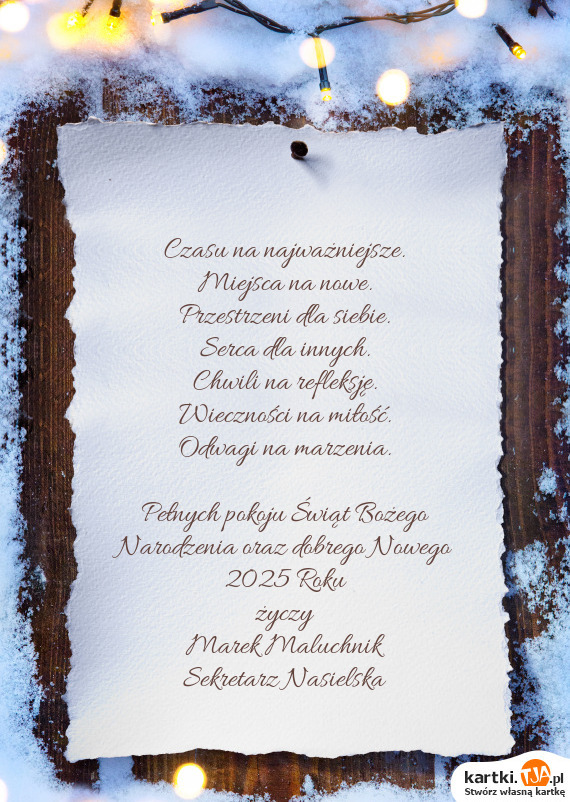 Czasu na najważniejsze.
Miejsca na nowe.
Przestrzeni dla siebie.
Serca dla innych.
Chwili na refleksję.
Wieczności na miłość.
Odwagi na marzenia.
Pełnych pokoju Świąt Bożego
Narodzenia oraz dobrego Nowego
2025 Roku
życzy
Marek Maluchnik
Sekretarz Nasielska
kartki.TJA.pl
Stwórz własną kartkę